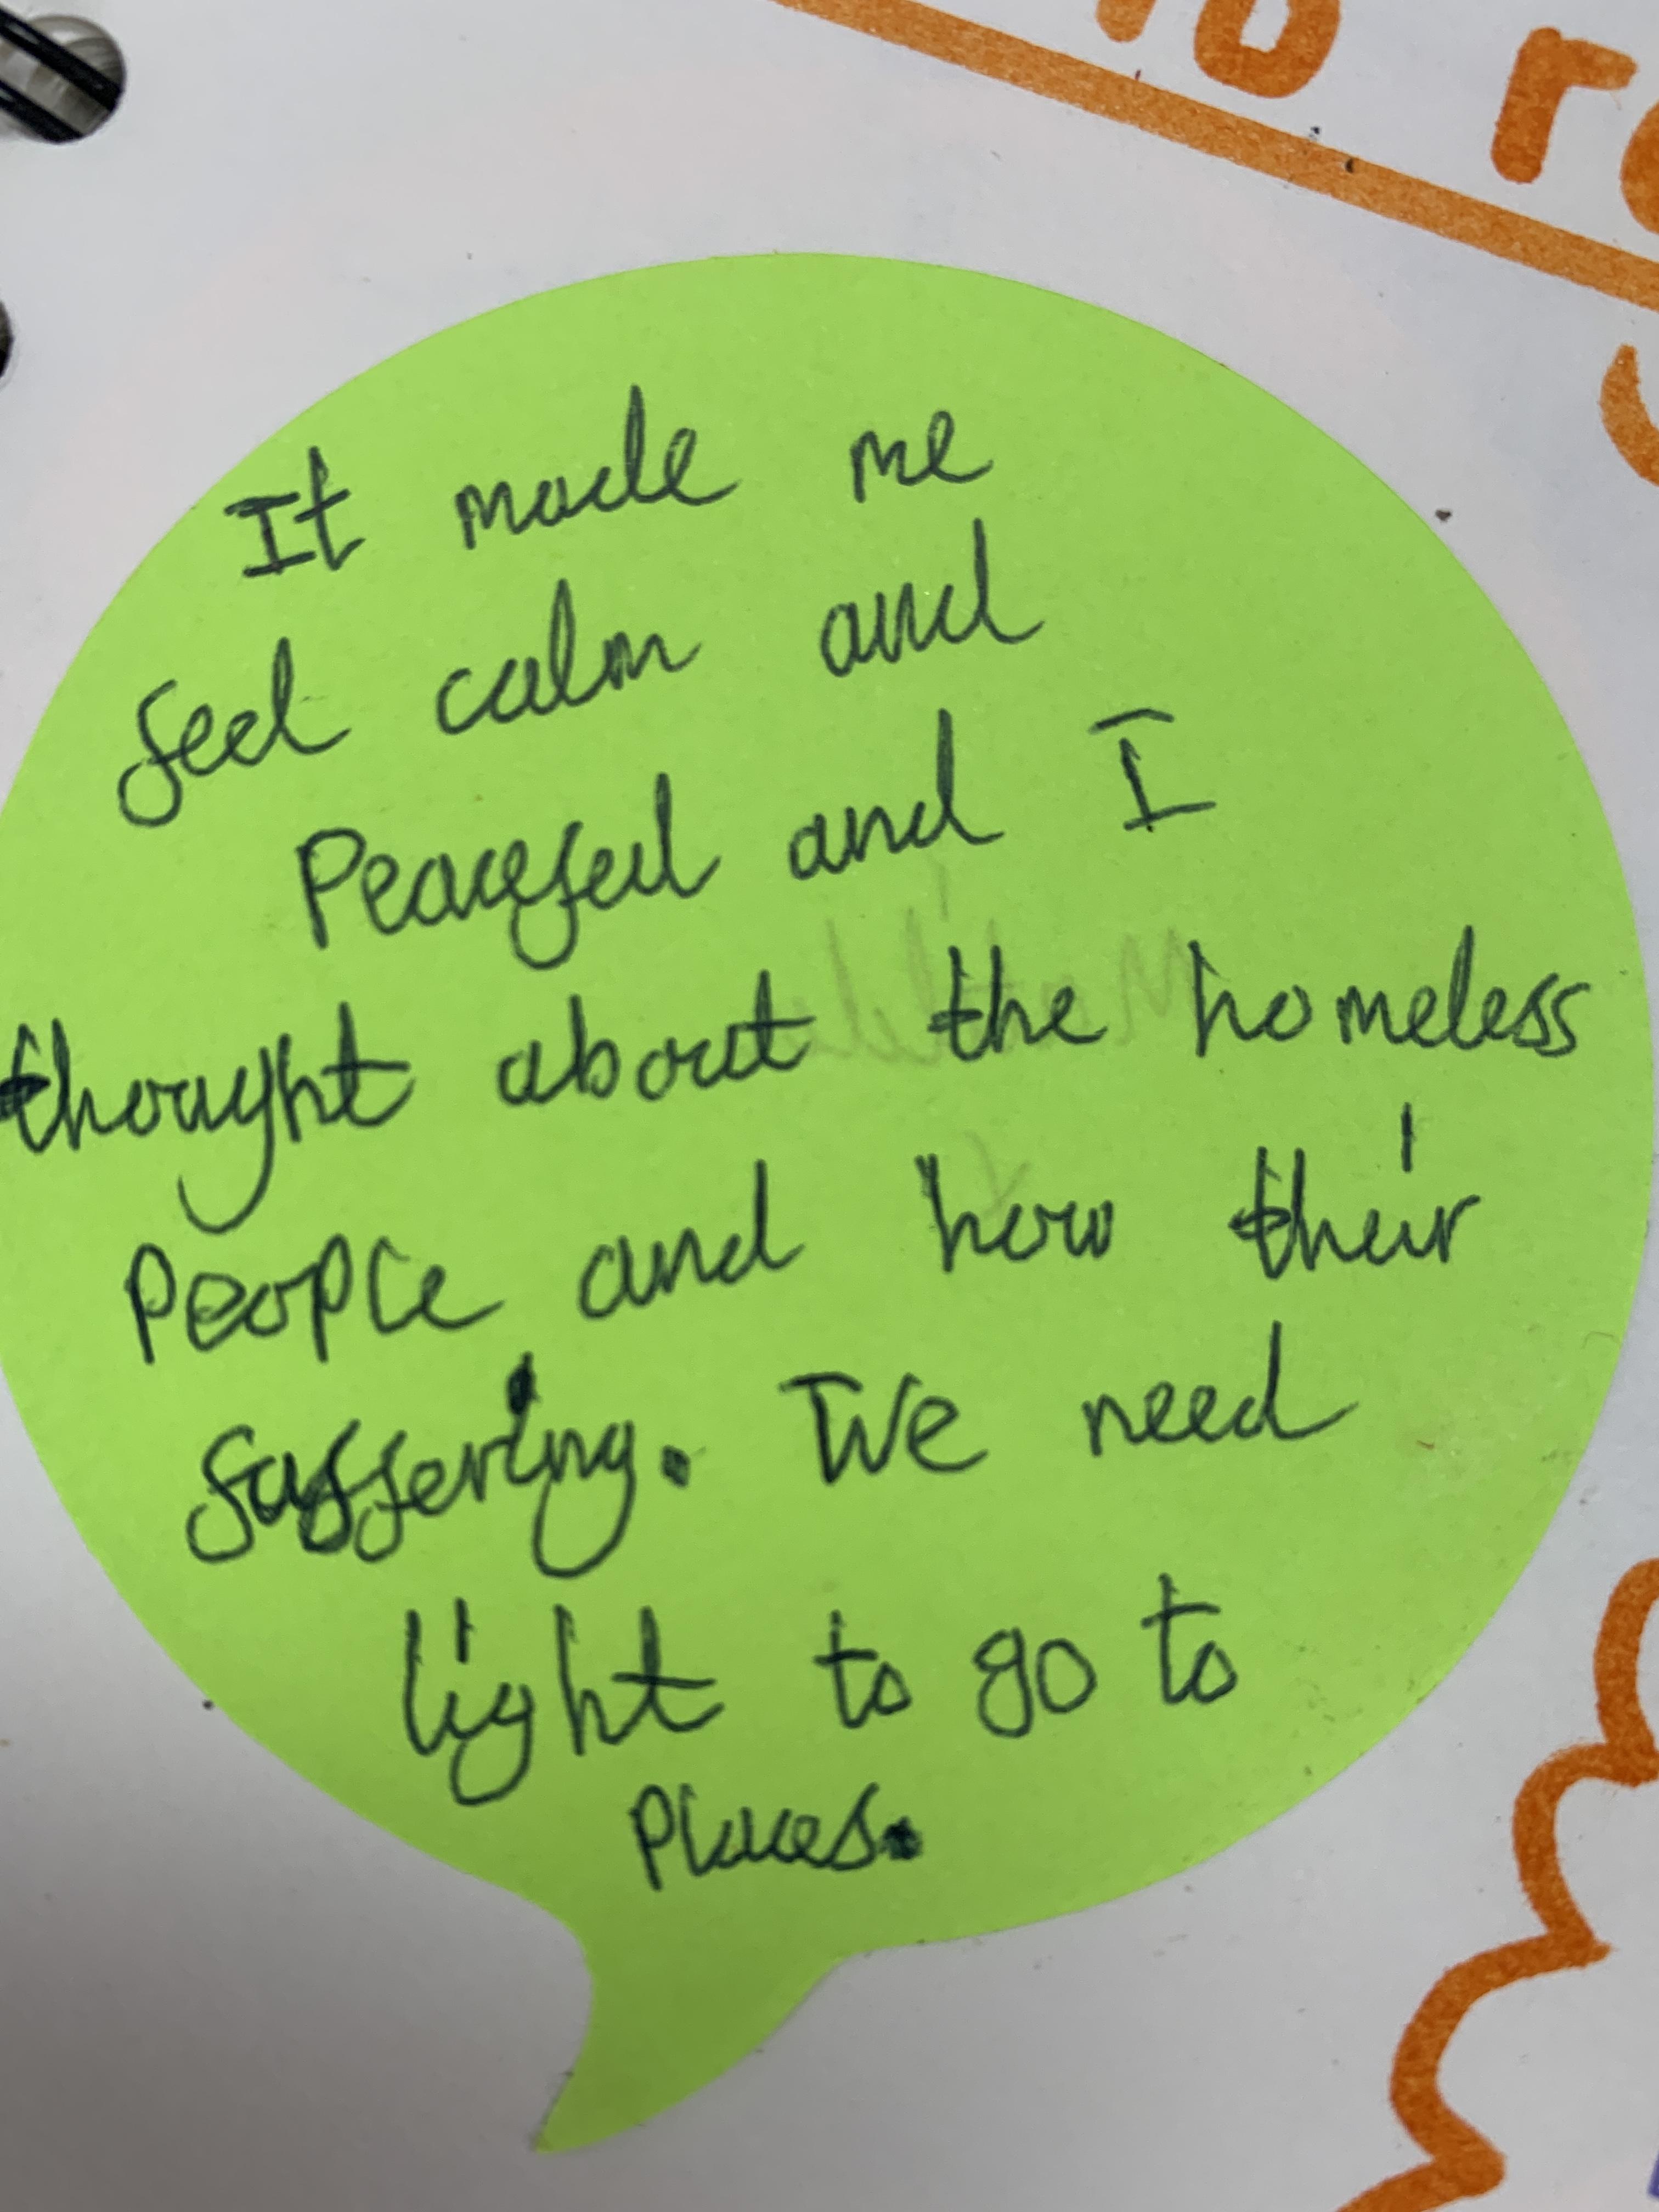 It made me
feel calm and
Peaceful and I
thought about the homeless
People and how their
suffering. We need
light to go to
Places.